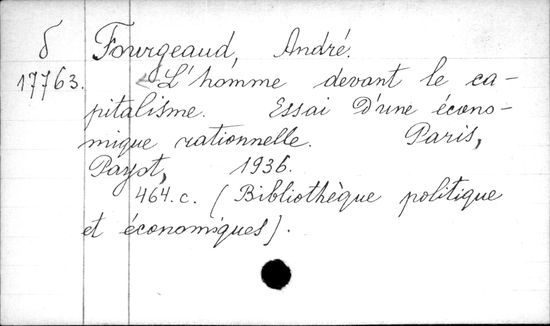 δ Fourgeaud, André.
17763. L'homme devant le ca-
pitalisme. Essai D'une écono-
mique rationnelle. Paris,
Payot, 1936.
464.c. (Bibliothèque politique
et économiques).